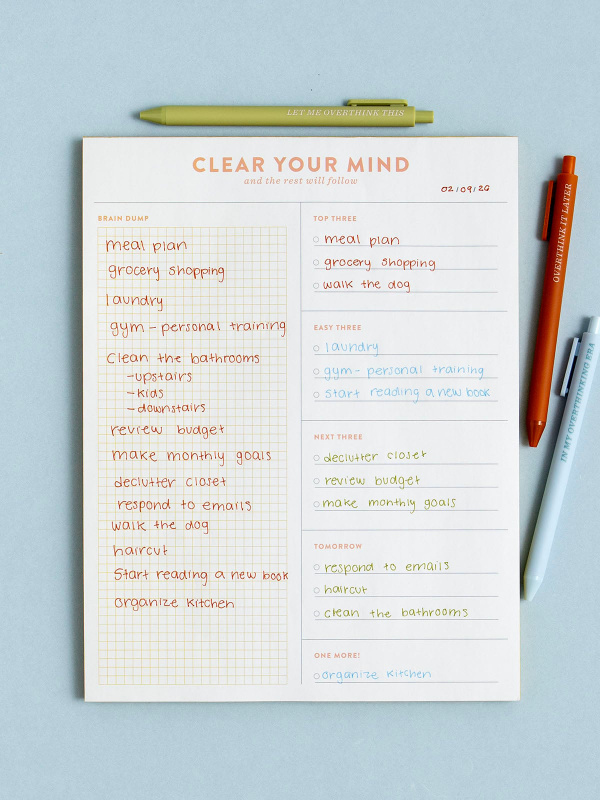 LET ME OVERTHINK THIS
CLEAR YOUR MIND
and the rest will follow
02/09/26
BRAIN DUMP
meal plan
grocery shopping
laundry
gym - personal training
Clean the bathrooms
- upstairs
- kids
- downstairs
review budget
make monthly goals
declutter closet
respond to emails
walk the dog
haircut
Start reading a new book
organize kitchen
TOP THREE
meal plan
grocery shopping
walk the dog
EASY THREE
laundry
gym - personal training
Start reading a new book
NEXT THREE
declutter closet
review budget
make monthly goals
TOMORROW
respond to emails
haircut
clean the bathrooms
ONE MORE!
organize kitchen
OVERTHINK IT LATER
IN MY OVERTHINKING ERA